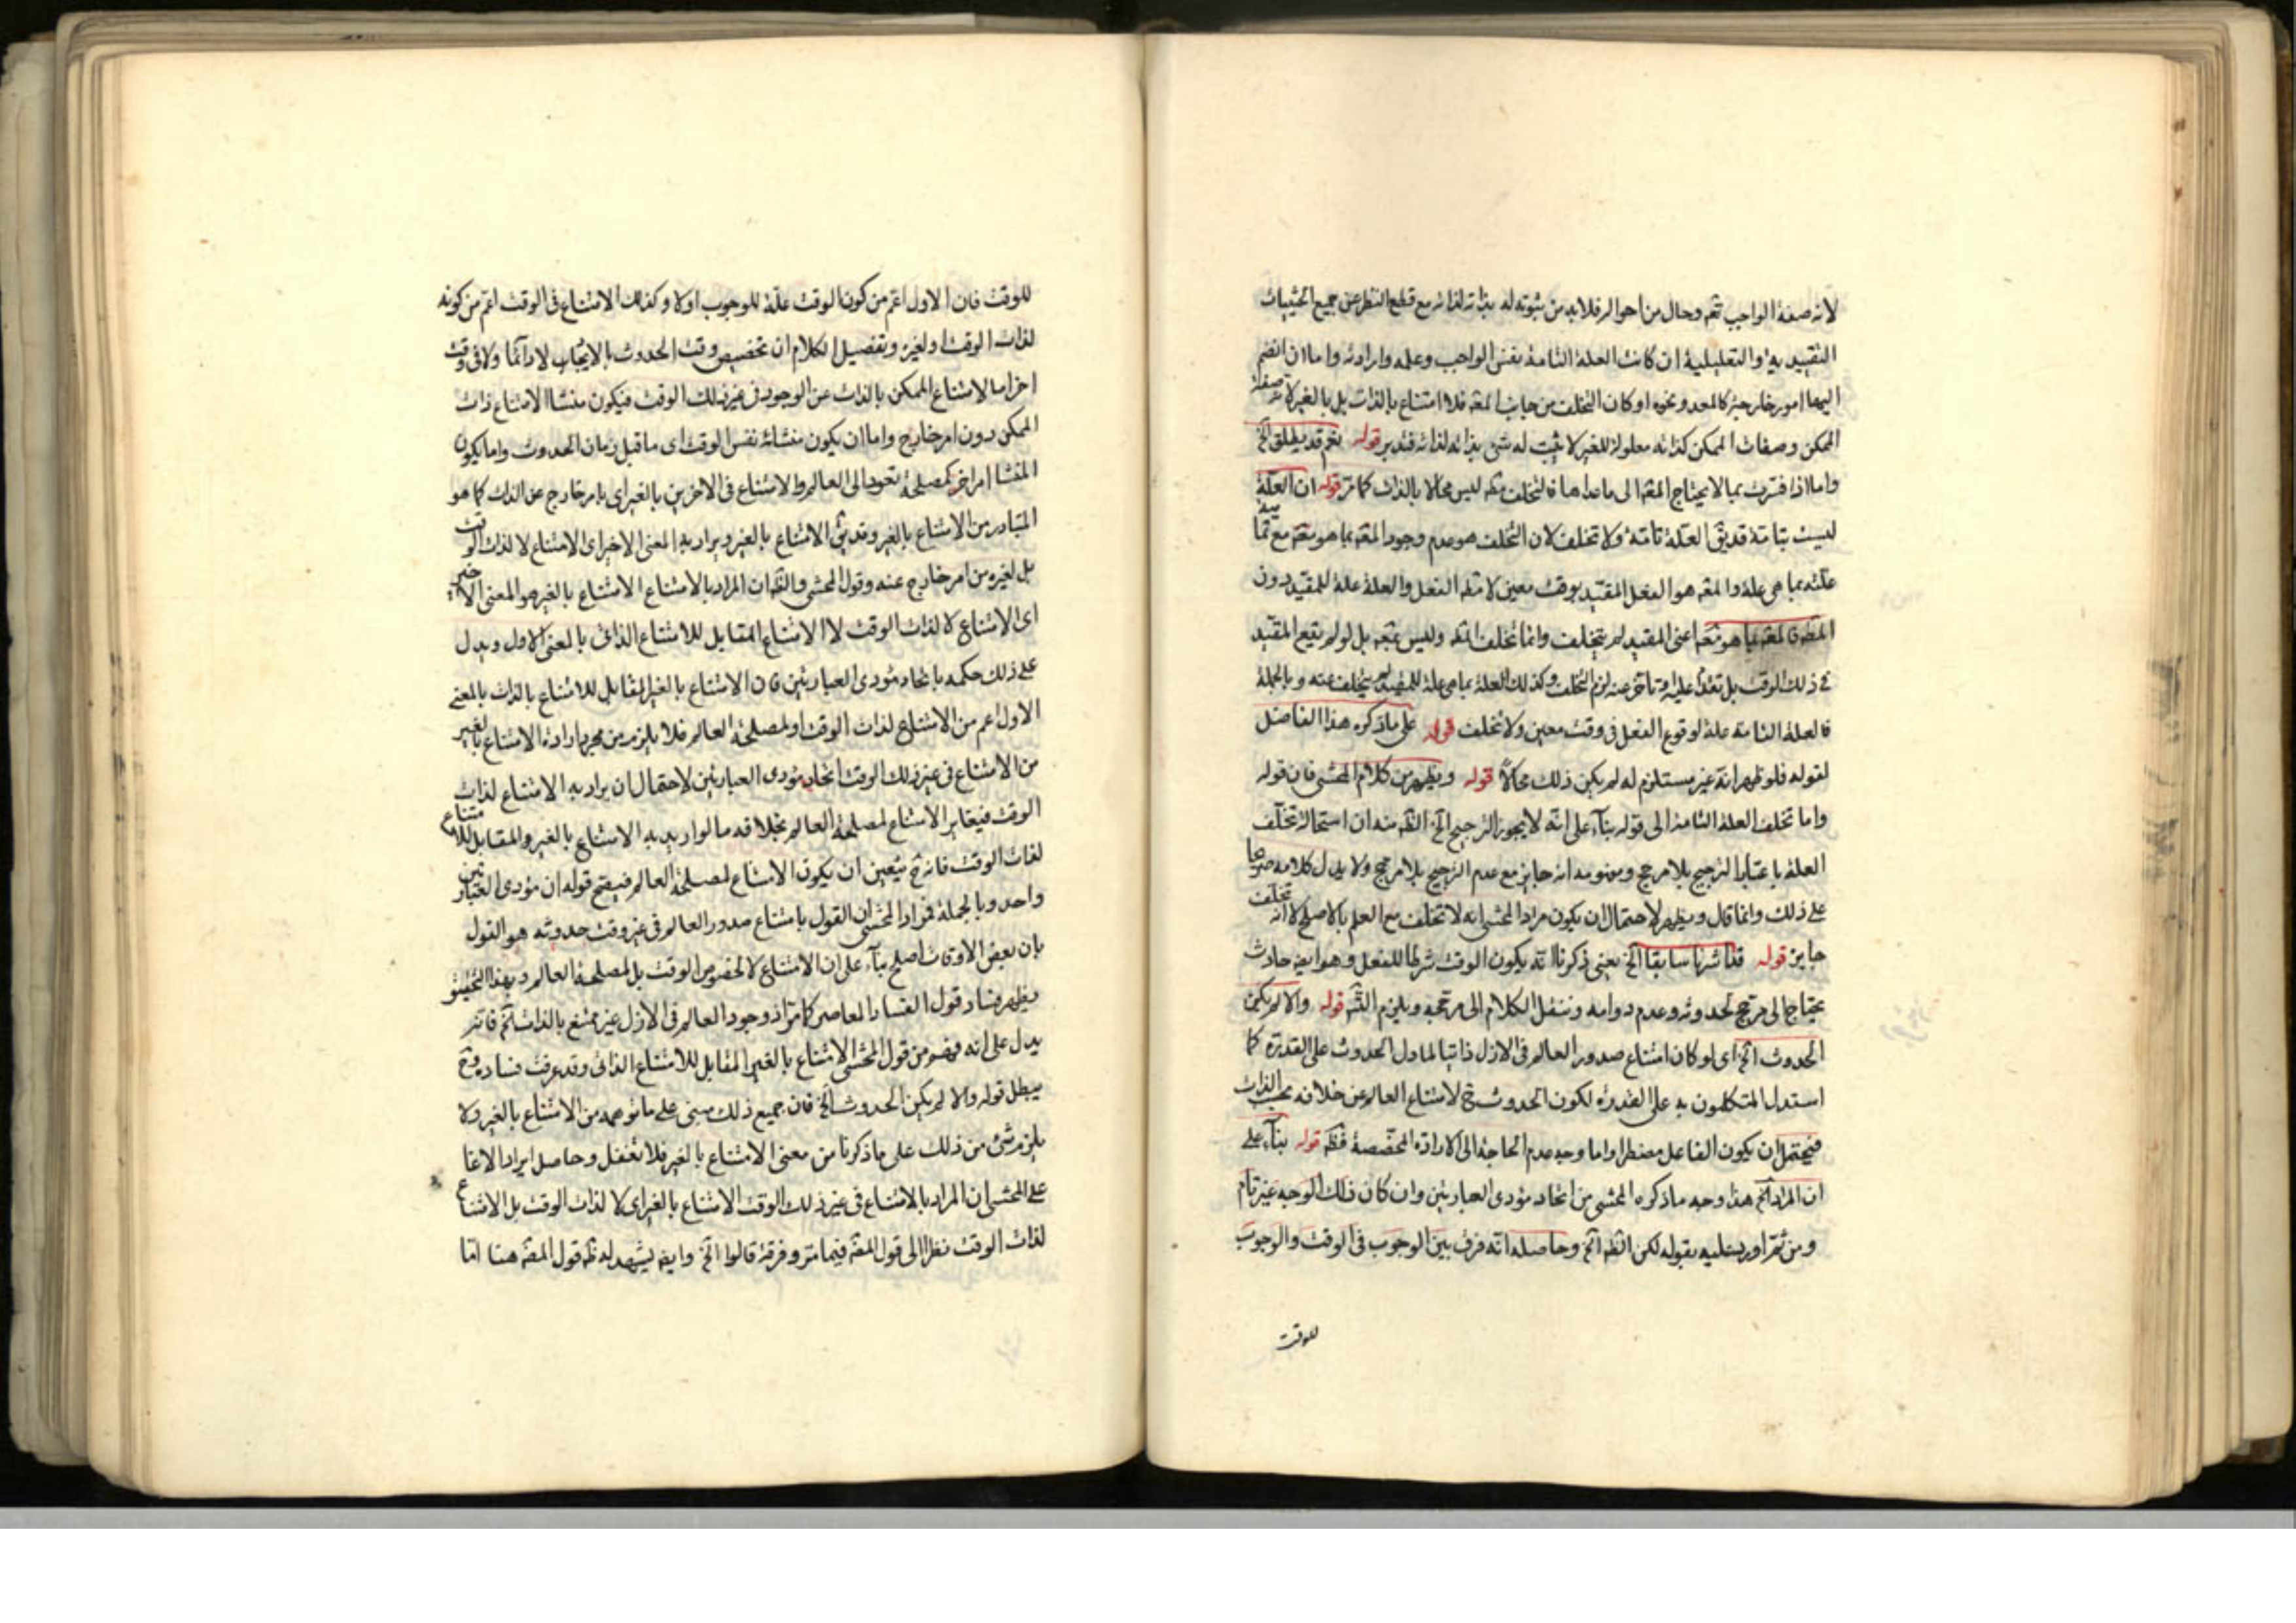 لانه صفة الواجب تعم وحال من احواله فلابد من ثبوته له بذاته لذاته مع قطع النظر عن جميع الحيثيات
التقييدية والتعليلية ان كانت العلة التامة نفس الواجب وعلمه وارادته واما ان انضم
اليها امور خارجية كالمعد ونحوه او كان التخلف من جانب المعه فلا امتناع بالذات بل بالغير لان صفة
الممكن وصفات الممكن كذاته معلولة للغير لا يثبت له شئ بذاته لذاته فتدبر قوله نعم قد يطلق الخ
واما اذا فسرت بما لا يحتاج المعه الى ماعداها فالتخلف عنه ليس محالا بالذات كما مر قوله ان العلة
ليست بتامة قد يق العلة تامة ولا تخلف لان التخلف هو عدم وجود المعه بما هو معه مع تمامية
علته بما هى علة والمعه هو الفعل المقيد بوقت معين لا مط الفعل والعلة علة للمقيد دون
المط فالمعه بما هو معه اعنى المقيد لم يتخلف وانما تخلف المط وليس بمعه بل لو لم يقع المقيد
فى ذلك الوقت بل تقدم عليه وتاخر عنه لزم التخلف وكذلك العلة بما هى علة للمقيد لم يتخلف عنه وبالجملة
فالعلة التامة علة لوقوع الفعل فى وقت معين ولا تخلف قوله على ماذكره هذا الفاضل
لقوله فلو ظهر انه غير مستلزم له لم يكن ذلك محالا قوله ويظهر من كلام المحشى فان قوله
واما تخلف العلة التامة الى قوله بناء على انه لا يجوز الترجيح الخ الظ منه ان استحالة تخلف
العلة باعتبار الترجيح بلا مرجح ومفهومه انه جايز مع عدم الترجيح بلا مرجح ولا يدل كلامه صريحا
على ذلك وانما قال ويظهر لاحتمال ان يكون مراد المحشى انه لا تخلف مع العلم بالاصلح لا انه تخلف
جايز قوله قد اشرنا سابقا الخ يعنى ذكرنا انه يكون الوقت شرطا للفعل وهو ايضه حادث
يحتاج الى مرجح لحدوثه وعدم دوامه وننقل الكلام الى مرجحه ويلزم التس قوله والا لم يكن
الحدوث الخ اى لو كان امتناع صدور العالم فى الازل ذاتيا لما دل الحدوث على القدرة كما
استدل المتكلمون به على القدرة لكون الحدوث ح لامتناع العالم عن خلافه بحسب الذات
فيحتمل ان يكون الفاعل مضطرا واما وجه عدم الحاجة الى الارادة المخصصة فظ قوله بناء على
ان المراد الخ هذا وجه ماذكره المحشى من اتحاد مؤدى العبارتين وان كان ذلك الوجه غير تام
ومن ثم اورد عليه بقوله لكن الظ الخ وحاصله انه فرق بين الوجوب فى الوقت والوجوب
للوقت
للوقت فان الاول اعم من كون الوقت علة للوجوب اولا وكذلك الامتناع فى الوقت اعم من كونه
لذات الوقت او لغيره وتفصيل الكلام ان تخصيص وقت الحدوث بالايجاب لا دائما ولا فى وقت
اخر اما لامتناع الممكن بالذات عن الوجود فى غير ذلك الوقت فيكون منشا الامتناع ذات
الممكن دون امر خارج واما ان يكون منشائه نفس الوقت اى ما قبل زمان الحدوث واما يكون
المنشا امر اخر كمصلحة تعود الى العالم والامتناع فى الاخرين بالغير اى بامر خارج عن الذات كما هو
المتبادر من الامتناع بالغير وقد يق الامتناع بالغير ويراد به المعنى الاخير اى الامتناع لا لذات الوقت
بل لغيره من امر خارج عنه وقول المحشى والظ ان المراد بالامتناع الامتناع بالغير هو المعنى الاخير
اى الامتناع لا لذات الوقت لا الامتناع المقابل للامتناع الذاتى بالمعنى الاول ويدل
على ذلك حكمه باتحاد مؤدى العبارتين فان الامتناع بالغير المقابل للامتناع بالذات بالمعنى
الاول اعم من الامتناع لذات الوقت او لمصلحة العالم فلا يلزم من مجرد ارادة الامتناع بالغير
من الامتناع فى غير ذلك الوقت اتحاد مؤدى العبارتين لاحتمال ان يراد به الامتناع لذات
الوقت فيغاير الامتناع لمصلحة العالم بخلافه مالو اريد به الامتناع بالغير والمقابل للامتناع
لذات الوقت فانه ح يتعين ان يكون الامتناع لمصلحة العالم فيصح قوله ان مؤدى العبارتين
واحد وبالجملة فمراد المحشى ان القول بامتناع صدور العالم فى غير وقت حدوثه هو القول
بان بعض الاوقات اصلح بناء على ان الامتناع لا لخصوص الوقت بل لمصلحة العالم وبهذا التحقيق
يظهر فساد قول المعاصر كما مر اذ وجود العالم فى الازل غير ممتنع بالذات الخ فانه
يدل على انه فهم من قول المحشى الامتناع بالغير المقابل للامتناع الذاتى وقد عرفت فساده وح
يبطل قوله والا لم يكن الحدوث الخ فان جميع ذلك مبنى على ما توهمه من الامتناع بالغير ولا
يلزم شئ من ذلك على ماذكرنا من معنى الامتناع بالغير فلا تغفل وحاصل ايراد الاغا
على المحشى ان المراد بالامتناع فى غير ذلك الوقت الامتناع بالغير اى لا لذات الوقت بل الامتناع
لذات الوقت نظرا الى قول المصه فيما مر وفرقة قالوا الخ وايضه يشهد له ظ قول المصه هنا اما